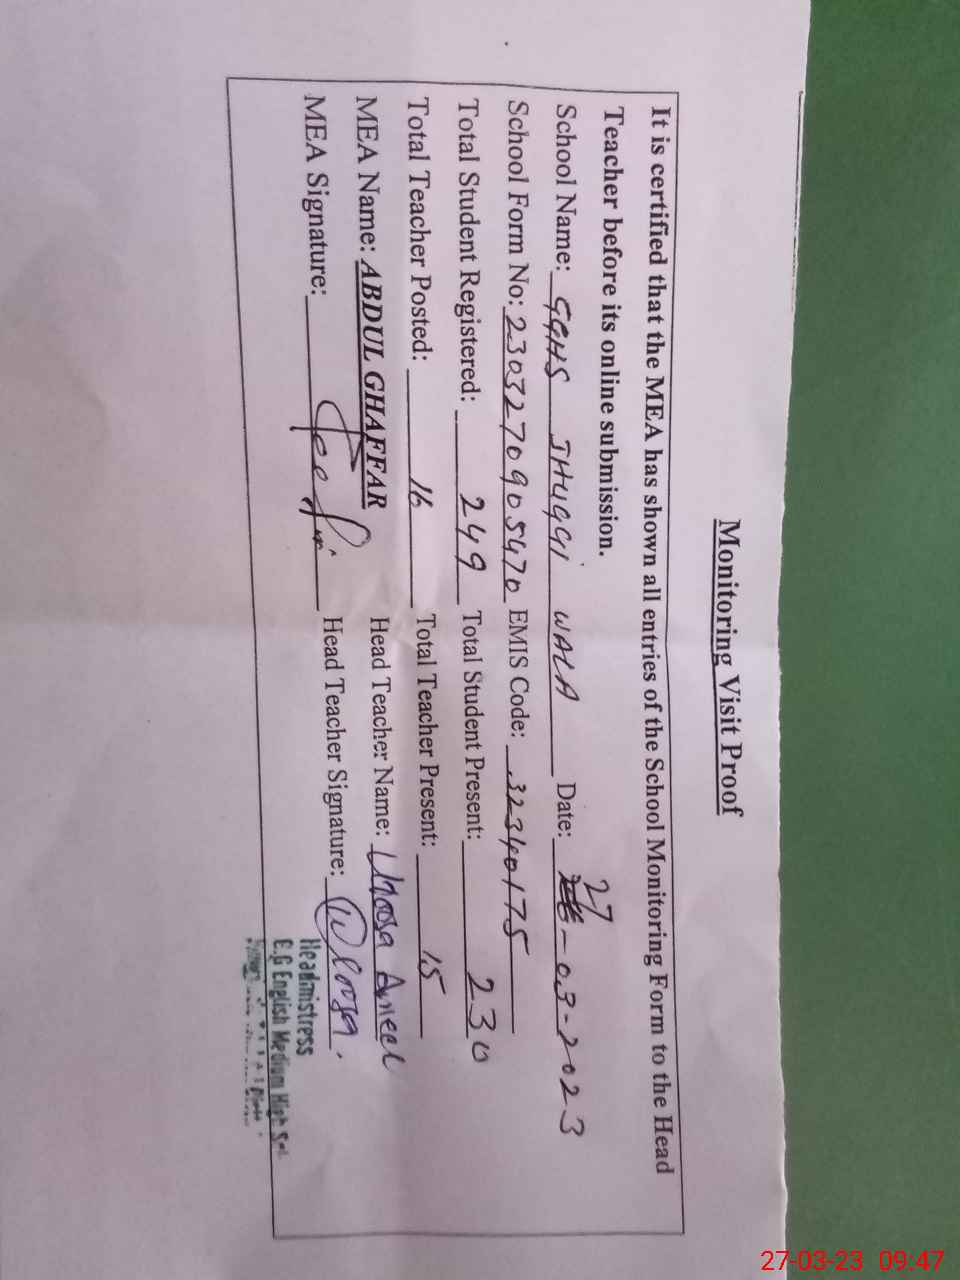 Monitoring Visit Proof
It is certified that the MEA has shown all entries of the School Monitoring Form to the Head
Teacher before its online submission.
School Name: GGHS JHUGGI WALA Date: 27-03-2023
School Form No: 2303270905470 EMIS Code: 32340175
Total Student Registered: 249 Total Student Present: 230
Total Teacher Posted: 16 Total Teacher Present: 15
MEA Name: ABDUL GHAFFAR Head Teacher Name: Uroosa Aneel
MEA Signature: Head Teacher Signature: Uroosa.
Headmistress
E.G English Medium High
27-03-23 09:47